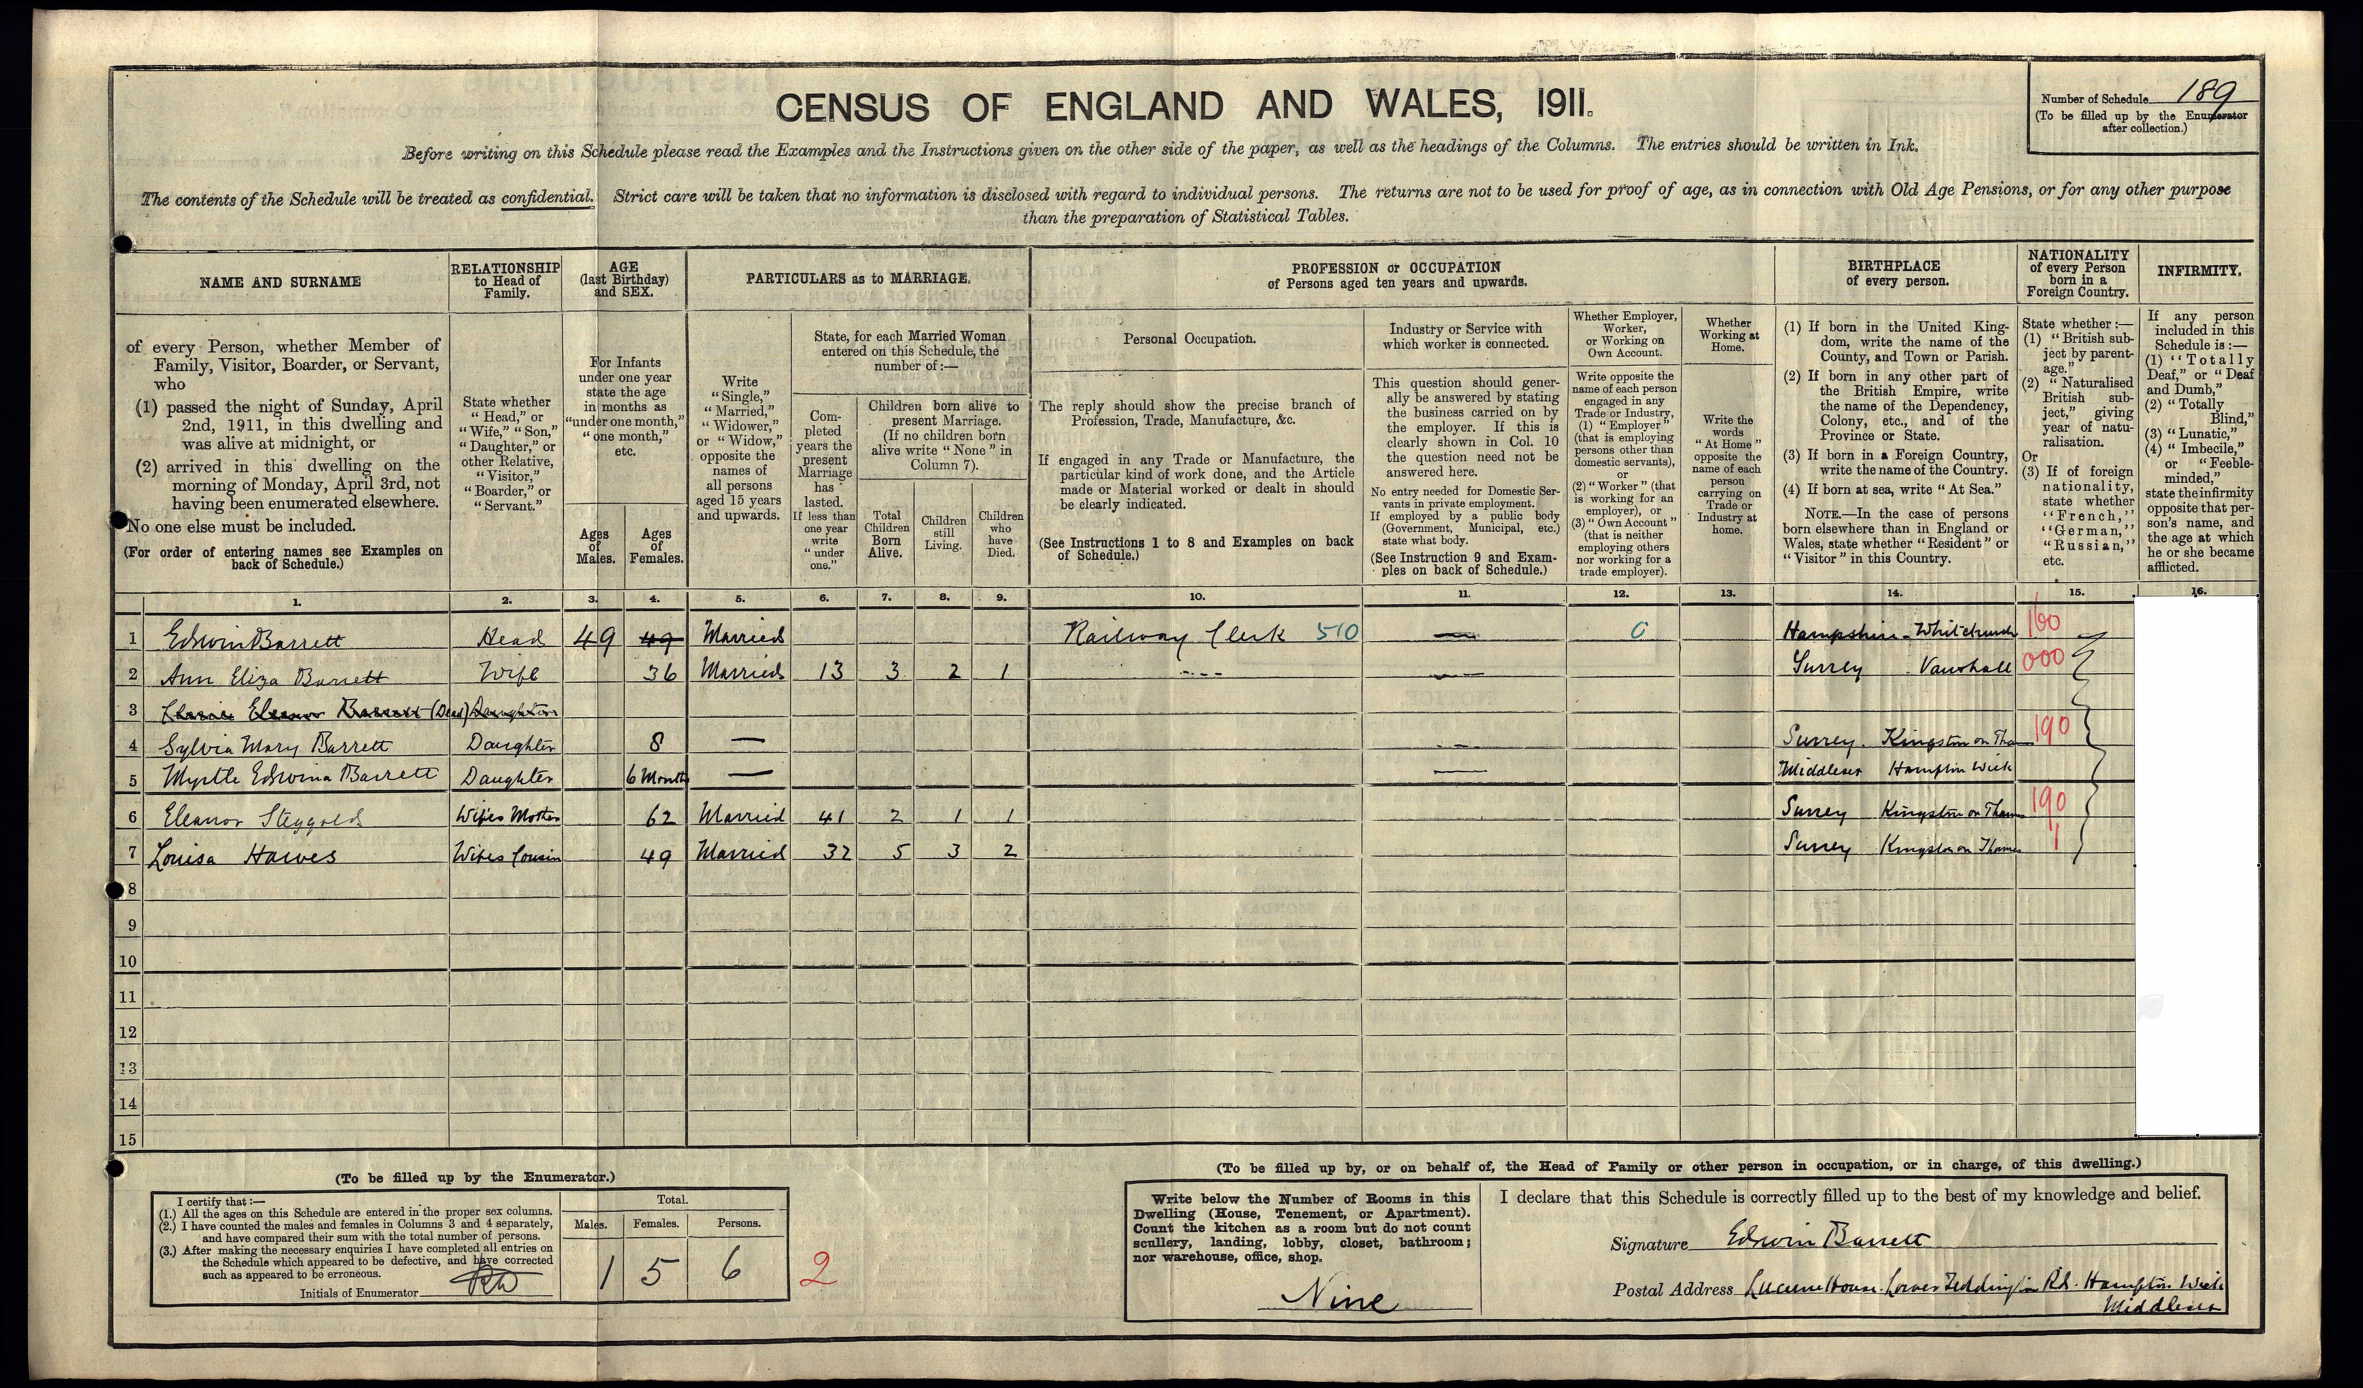 CENSUS OF ENGLAND AND WALES, 1911.
Number of Schedule 189
(To be filled up by the Enumerator
after collection.)
Before writing on this Schedule please read the Examples and the Instructions given on the other side of the paper, as well as the headings of the Columns. The entries should be written in Ink.
The contents of the Schedule will be treated as confidential. Strict care will be taken that no information is disclosed with regard to individual persons. The returns are not to be used for proof of age, as in connection with Old Age Pensions, or for any other purpose
than the preparation of Statistical Tables.
NAME AND SURNAME
RELATIONSHIP
to Head of
Family.
AGE
(last Birthday)
and SEX.
PARTICULARS as to MARRIAGE.
PROFESSION or OCCUPATION
of Persons aged ten years and upwards.
BIRTHPLACE
of every person.
NATIONALITY
of every Person
born in a
Foreign Country.
INFIRMITY.
of every Person, whether Member of
Family, Visitor, Boarder, or Servant,
who
(1) passed the night of Sunday, April
2nd, 1911, in this dwelling and
was alive at midnight, or
(2) arrived in this dwelling on the
morning of Monday, April 3rd, not
having been enumerated elsewhere.
No one else must be included.
(For order of entering names see Examples on
back of Schedule.)
State whether
"Head," or
"Wife," "Son,"
"Daughter," or
other Relative,
"Visitor,"
"Boarder," or
"Servant."
For Infants
under one year
state the age
in months as
"under one month,"
"one month,"
etc.
Ages
of
Males.
Ages
of
Females.
Write
"Single,"
"Married,"
"Widower,"
or "Widow,"
opposite the
names of
all persons
aged 15 years
and upwards.
State, for each Married Woman
entered on this Schedule, the
number of:—
Com-
pleted
years the
present
Marriage
has
lasted.
If less than
one year
write
"under
one."
Children born alive to
present Marriage.
(If no children born
alive write "None" in
Column 7).
Total
Children
Born
Alive.
Children
still
Living.
Children
who
have
Died.
Personal Occupation.
The reply should show the precise branch of
Profession, Trade, Manufacture, &c.
If engaged in any Trade or Manufacture, the
particular kind of work done, and the Article
made or Material worked or dealt in should
be clearly indicated.
(See Instructions 1 to 8 and Examples on back
of Schedule.)
Industry or Service with
which worker is connected.
This question should gener-
ally be answered by stating
the business carried on by
the employer. If this is
clearly shown in Col. 10
the question need not be
answered here.
No entry needed for Domestic Ser-
vants in private employment.
If employed by a public body
(Government, Municipal, etc.)
state what body.
(See Instruction 9 and Exam-
ples on back of Schedule.)
Whether Employer,
Worker,
or Working on
Own Account.
Write opposite the
name of each person
engaged in any
Trade or Industry,
(1) "Employer"
(that is employing
persons other than
domestic servants),
or
(2) "Worker" (that
is working for an
employer), or
(3) "Own Account"
(that is neither
employing others
nor working for a
trade employer).
Whether
Working at
Home.
Write the
words
"At Home"
opposite the
name of each
person
carrying on
Trade or
Industry at
home.
(1) If born in the United King-
dom, write the name of the
County, and Town or Parish.
(2) If born in any other part of
the British Empire, write
the name of the Dependency,
Colony, etc., and of the
Province or State.
(3) If born in a Foreign Country,
write the name of the Country.
(4) If born at sea, write "At Sea."
NOTE.—In the case of persons
born elsewhere than in England or
Wales, state whether "Resident" or
"Visitor" in this Country.
State whether:—
(1) "British sub-
ject by parent-
age."
(2) "Naturalised
British sub-
ject," giving
year of natu-
ralisation.
Or
(3) If of foreign
nationality,
state whether
"French,"
"German,"
"Russian,"
etc.
If any person
included in this
Schedule is:—
(1) "Totally
Deaf," or "Deaf
and Dumb,"
(2) "Totally
Blind,"
(3) "Lunatic,"
(4) "Imbecile,"
or "Feeble-
minded,"
state the infirmity
opposite that per-
son's name, and
the age at which
he or she became
afflicted.
1. 2. 3. 4. 5. 6. 7. 8. 9. 10. 11. 12. 13. 14. 15. 16.
1 Edwin Barrett Head 49 49 Married Railway Clerk 510 — 0 Hampshire - Whitchurch 160
2 Ann Eliza Barrett Wife 36 Married 13 3 2 1 --- — Surrey Vauxhall 000
3 Eleanor Barrett (Dead) Daughter
4 Sylvia Mary Barrett Daughter 8 — — Surrey. Kingston on Tha 190
5 Myrtle Edwina Barrett Daughter 6 Months — — Middlesex Hampton Wick
6 Eleanor Steggolds Wife's Mother 62 Married 41 2 1 1 Surrey Kingston on Thames 190
7 Louisa Hawes Wifes Cousin 49 Married 32 5 3 2 Surrey Kingston on Thames "
8
9
10
11
12
13
14
15
(To be filled up by the Enumerator.)
I certify that:—
(1.) All the ages on this Schedule are entered in the proper sex columns.
(2.) I have counted the males and females in Columns 3 and 4 separately,
and have compared their sum with the total number of persons.
(3.) After making the necessary enquiries I have completed all entries on
the Schedule which appeared to be defective, and have corrected
such as appeared to be erroneous.
Initials of Enumerator
Total.
Males. Females. Persons.
1 5 6 2
(To be filled up by, or on behalf of, the Head of Family or other person in occupation, or in charge, of this dwelling.)
Write below the Number of Rooms in this
Dwelling (House, Tenement, or Apartment).
Count the kitchen as a room but do not count
scullery, landing, lobby, closet, bathroom;
nor warehouse, office, shop.
Nine
I declare that this Schedule is correctly filled up to the best of my knowledge and belief.
Signature Edwin Barrett
Postal Address Lucerne House. Lower Teddington Rd. Hampton Wick
Middlesex